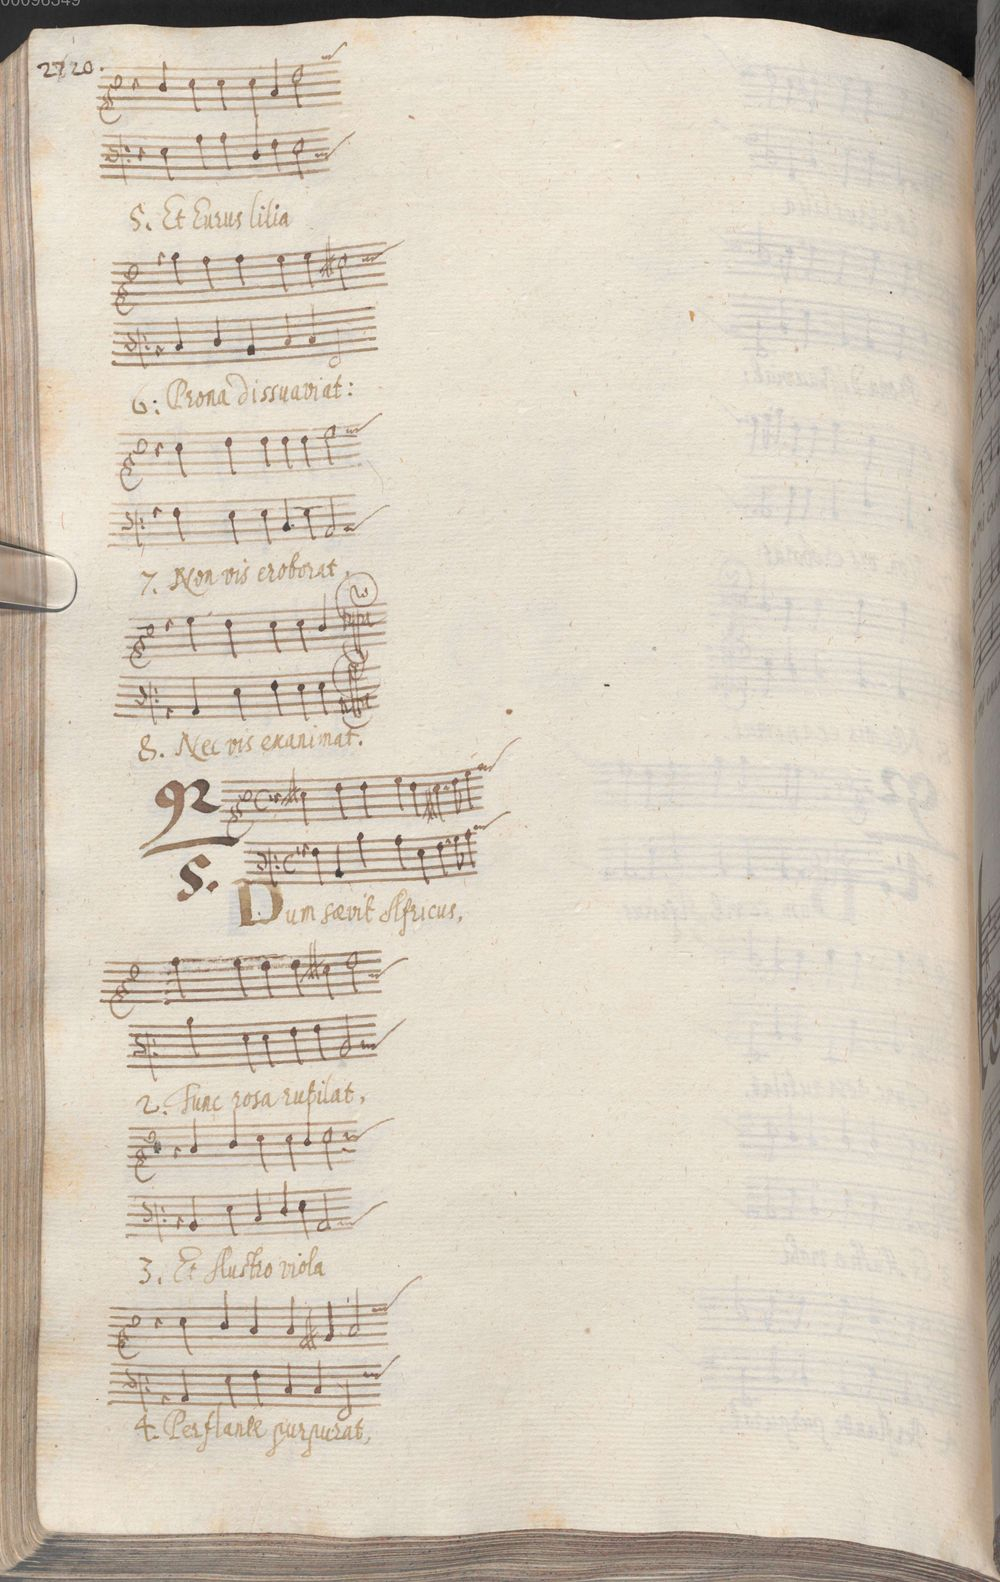 00096549
2720.
5. Et Eurus lilia
6: Prona dissuaviat:
7. Non vis eroborat,
8. Nec vis exanimat.
92
5.
Dum sævit Africus,
2. Tunc rosa rutilat,
3. Et Austro viola
4. Perflante purpurat,